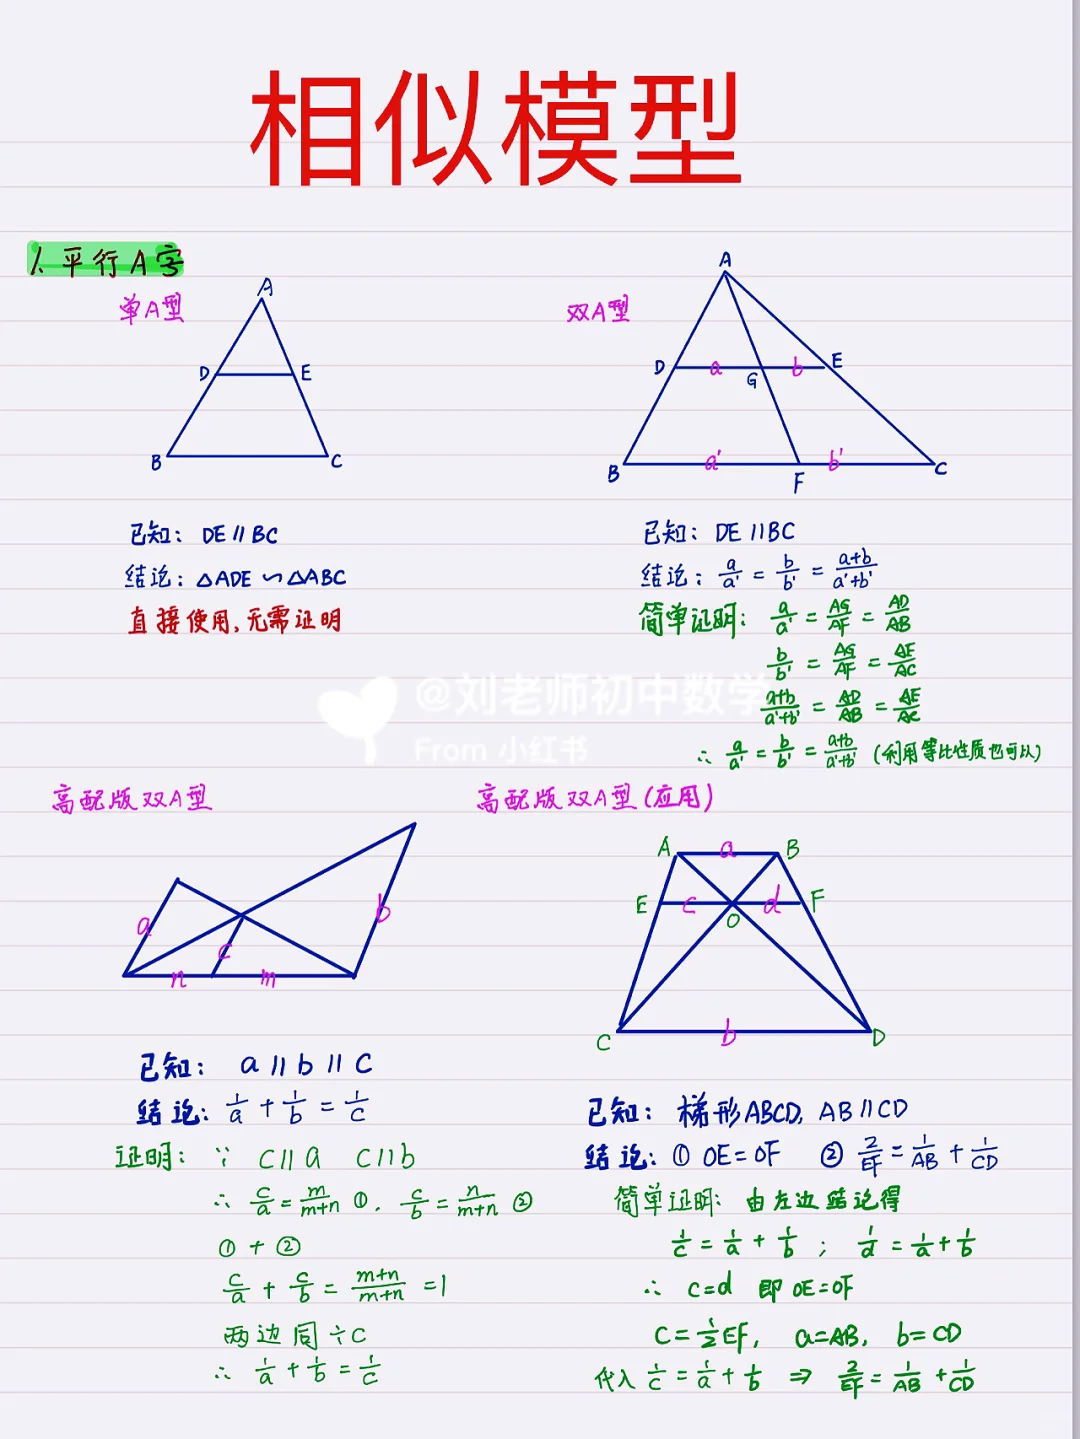 相似模型
1.平行A字
单A型
A
D E
B C
已知: DE∥BC
结论: △ADE∽△ABC
直接使用,无需证明
双A型
A
D a G b E
B a' F b' C
已知: DE∥BC
结论: a/a' = b/b' = a+b/a'+b'
简单证明: a/a' = AG/AF = AD/AB
b/b' = AG/AF = AE/AC
a+b/a'+b' = AD/AB = AE/AC
∴ a/a' = b/b' = a+b/a'+b' (利用等比性质也可以)
@刘老师初中数学
From 小红书
高配版双A型
a c b
n m
已知: a∥b∥c
结论: 1/a + 1/b = 1/c
证明: ∵ c∥a c∥b
∴ c/a = m/m+n ①. c/b = n/m+n ②
① + ②
c/a + c/b = m+n/m+n = 1
两边同÷c
∴ 1/a + 1/b = 1/c
高配版双A型(应用)
A a B
E c O d F
C b D
已知: 梯形ABCD, AB∥CD
结论: ① OE=OF ② 2/EF = 1/AB + 1/CD
简单证明: 由左边结论得
1/c = 1/a + 1/b ; 1/d = 1/a + 1/b
∴ c=d 即 OE=OF
c = 1/2 EF, a=AB, b=CD
代入 1/c = 1/a + 1/b ⇒ 2/EF = 1/AB + 1/CD